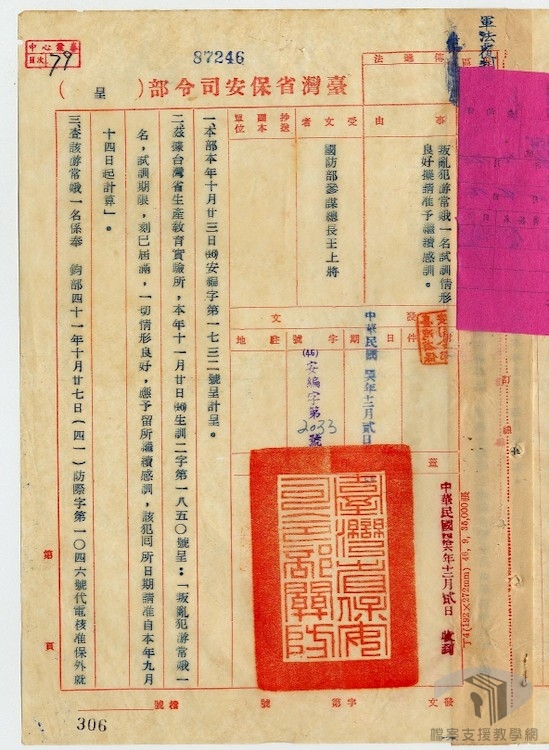 軍法覆判
速法
87246
臺灣省保安司令部（呈）
中心彙善
目次79
事由
叛亂犯游常哦一名試訓情形
良好擬請准予繼續感訓。
受文者
國防部參謀總長王上將
抄送
副本
單位
發文
附件
日期
中華民國 年十二月貳日
字號
(46)安編字第2033號
駐地
蓋印
臺灣省保安司令部關防
中華民國 年十二月貳日 收到
T4(192×272mm) 46, 9, 30,000張
一、本部本年十月廿三日(46)安福字第一七三二號呈計呈。
二、茲據台灣省生產教育實驗所，本年十一月廿日(46)生訓二字第一八五〇號呈：「叛亂犯游常哦一
名，試訓期限，刻已屆滿，一切情形良好，應予留所繼續感訓，該犯囘所日期請准自本年九月
十四日起計算」。
三、查該游常哦一名係奉 鈞部四十一年十月廿七日（四一）防際字第一〇四六號代電核准保外就
第 頁
發文 字第 號 檔號
306
檔案支援教學網